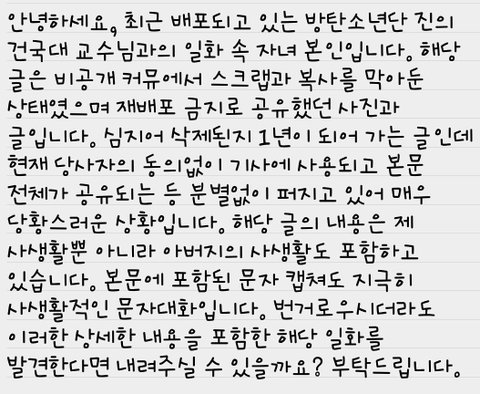 안녕하세요, 최근 배포되고 있는 방탄소년단 진의
건국대 교수님과의 일화 속 자녀 본인입니다. 해당
글은 비공개 커뮤에서 스크랩과 복사를 막아둔
상태였으며 재배포 금지로 공유했던 사진과
글입니다. 심지어 삭제된지 1년이 되어 가는 글인데
현재 당사자의 동의없이 기사에 사용되고 본문
전체가 공유되는 등 분별없이 퍼지고 있어 매우
당황스러운 상황입니다. 해당 글의 내용은 제
사생활뿐 아니라 아버지의 사생활도 포함하고
있습니다. 본문에 포함된 문자 캡쳐도 지극히
사생활적인 문자대화입니다. 번거로우시더라도
이러한 상세한 내용을 포함한 해당 일화를
발견한다면 내려주실 수 있을까요? 부탁드립니다.